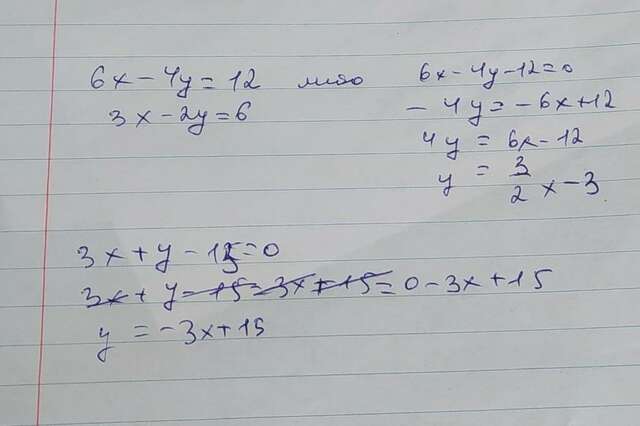 6x - 4y = 12 либо
3x - 2y = 6
6x - 4y - 12 = 0
- 4y = - 6x + 12
4y = 6x - 12
y = 3/2 x - 3
3x + y - 15 = 0
3x + y - 15 - 3x + 15 = 0 - 3x + 15
y = - 3x + 15